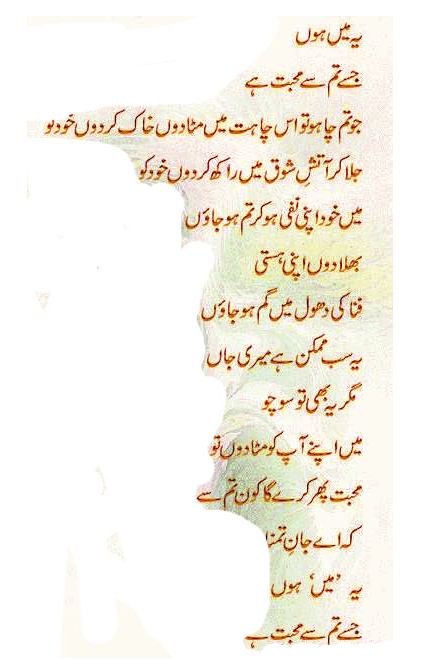 یہ میں ہوں
جسے تم سے محبت ہے
جو تم چاہو تو اس چاہت میں مٹا دوں خاک کر دوں خود کو
جلا کر آتشِ شوق میں راکھ کر دوں خود کو
میں خود اپنی نفی ہو کر تم ہو جاؤں
بھلا دوں اپنی ہستی
فنا کی دھول میں گم ہو جاؤں
یہ سب ممکن ہے میری جاں
مگر یہ بھی تو سوچو
میں اپنے آپ کو مٹا دوں تو
محبت پھر کرے گا کون تم سے
کہ اے جانِ تمنا
یہ ’میں‘ ہوں
جسے تم سے محبت ہے